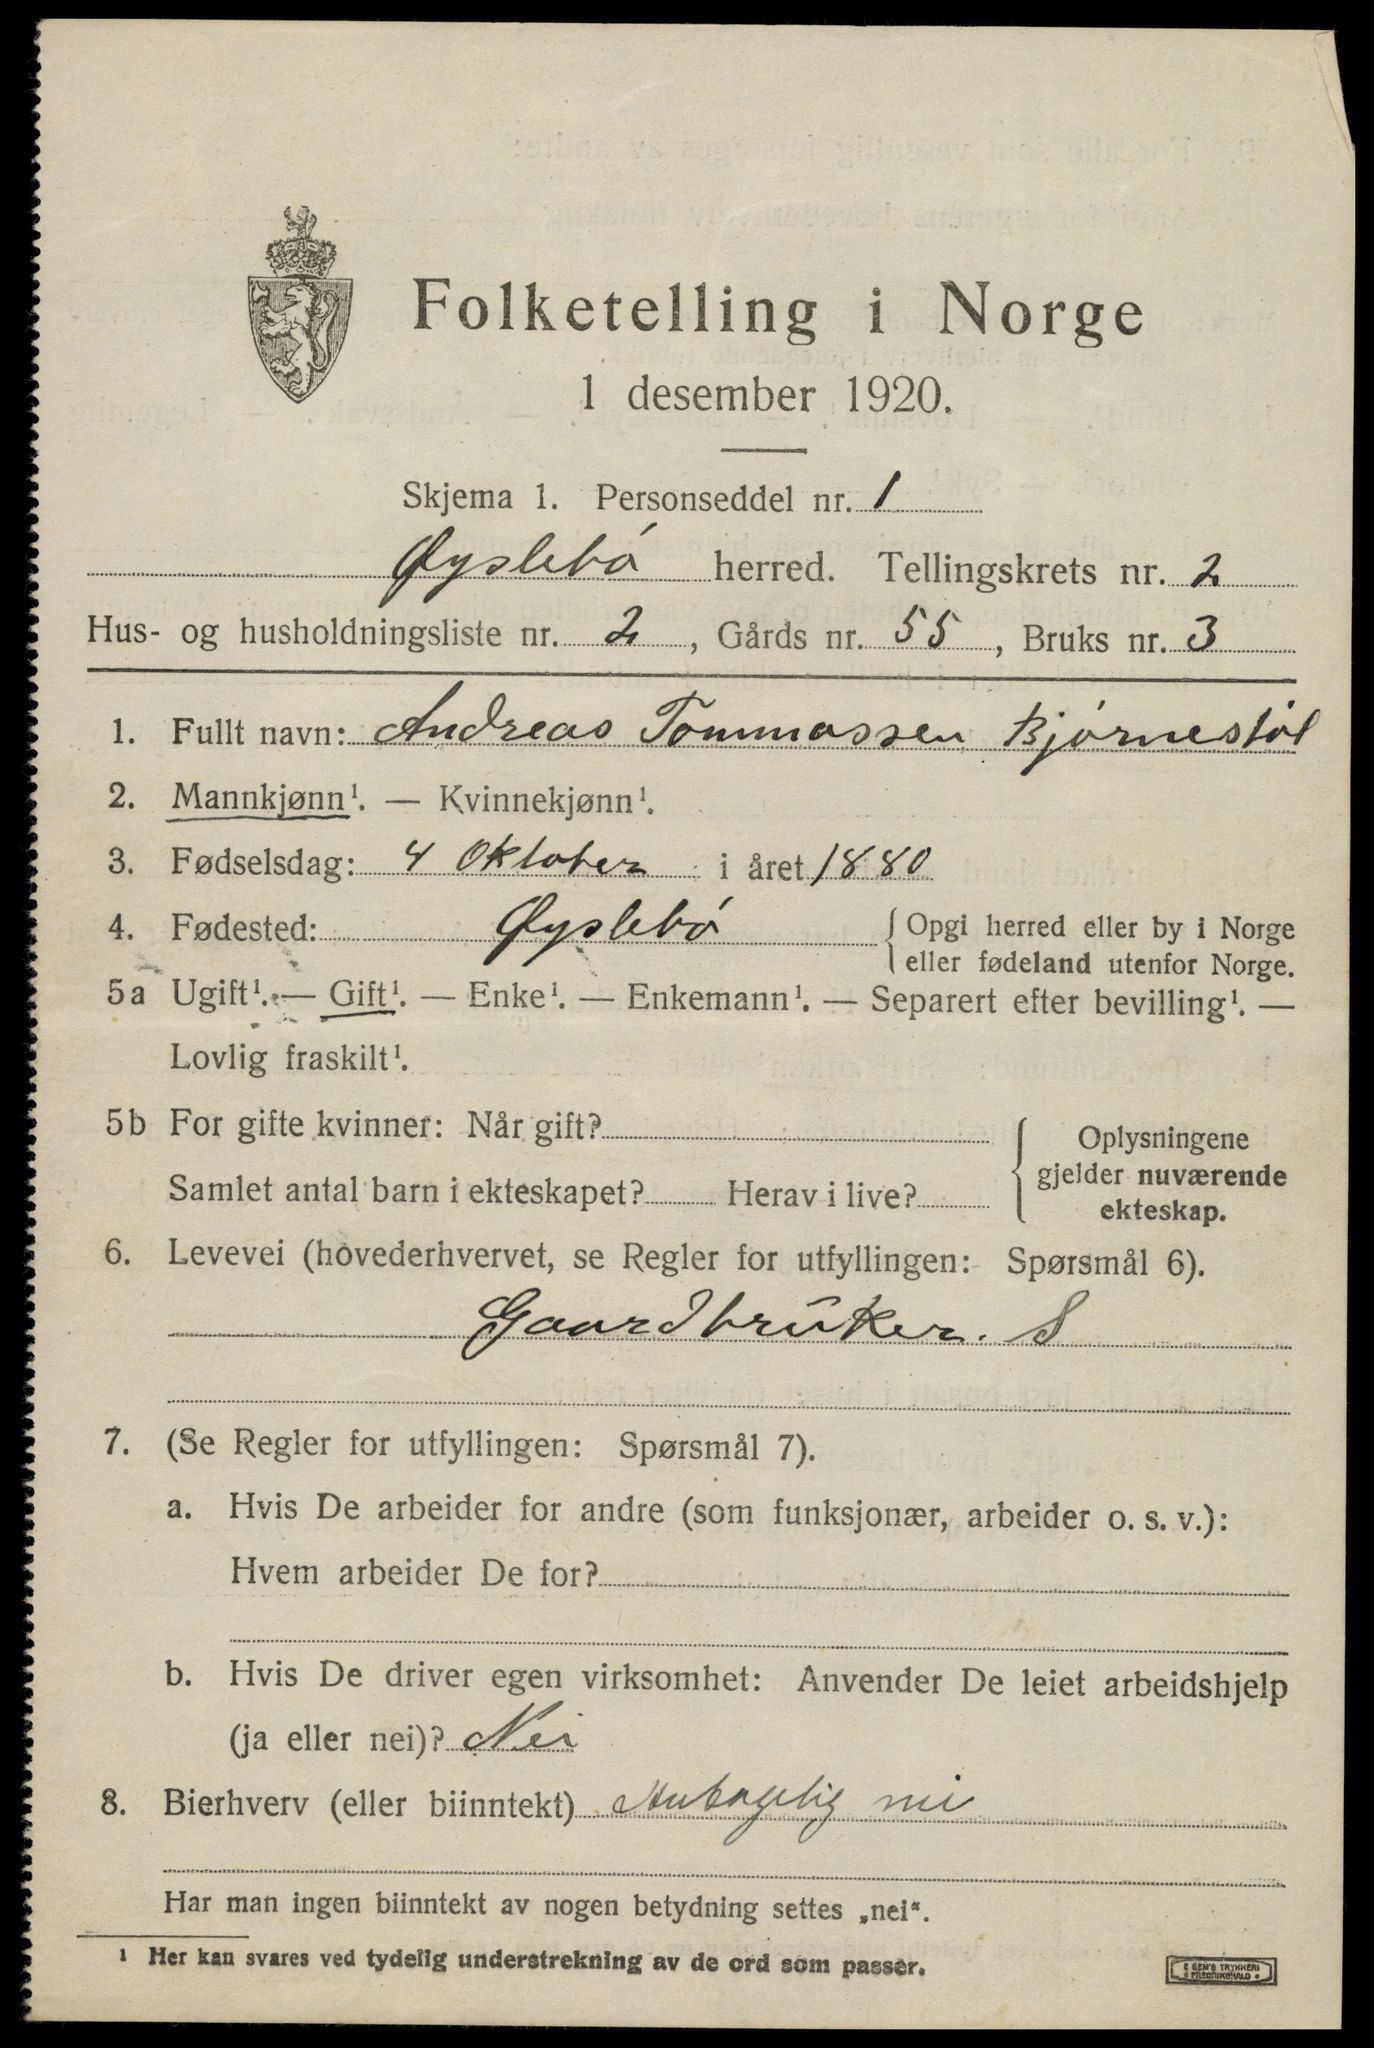 Folketelling i Norge
1 desember 1920.
Skjema 1. Personseddel nr. 1
Øyslebó herred. Tellingskrets nr. 2
Hus- og husholdningsliste nr. 2, Gårds nr. 55, Bruks nr. 3
1. Fullt navn: Andreas Tommassen Bjórnestól
2. Mannkjønn¹. — Kvinnekjønn¹.
3. Fødselsdag: 4 Oktober i året 1880
4. Fødested: Øyslebó { Opgi herred eller by i Norge
eller fødeland utenfor Norge.
5a Ugift¹. — Gift¹. — Enke¹. — Enkemann¹. — Separert efter bevilling¹. —
Lovlig fraskilt¹.
5b For gifte kvinner: Når gift?
Samlet antal barn i ekteskapet? Herav i live?
{ Oplysningene
gjelder nuværende
ekteskap.
6. Levevei (hovederhvervet, se Regler for utfyllingen: Spørsmål 6).
Gaardbrüker. S
7. (Se Regler for utfyllingen: Spørsmål 7).
a. Hvis De arbeider for andre (som funksjonær, arbeider o. s. v.):
Hvem arbeider De for?
b. Hvis De driver egen virksomhet: Anvender De leiet arbeidshjelp
(ja eller nei)? Nei
8. Bierhverv (eller biinntekt) Antagelig nei
Har man ingen biinntekt av nogen betydning settes „nei".
¹ Her kan svares ved tydelig understrekning av de ord som passer.
TRYKKERI
FREDRIKSHALD